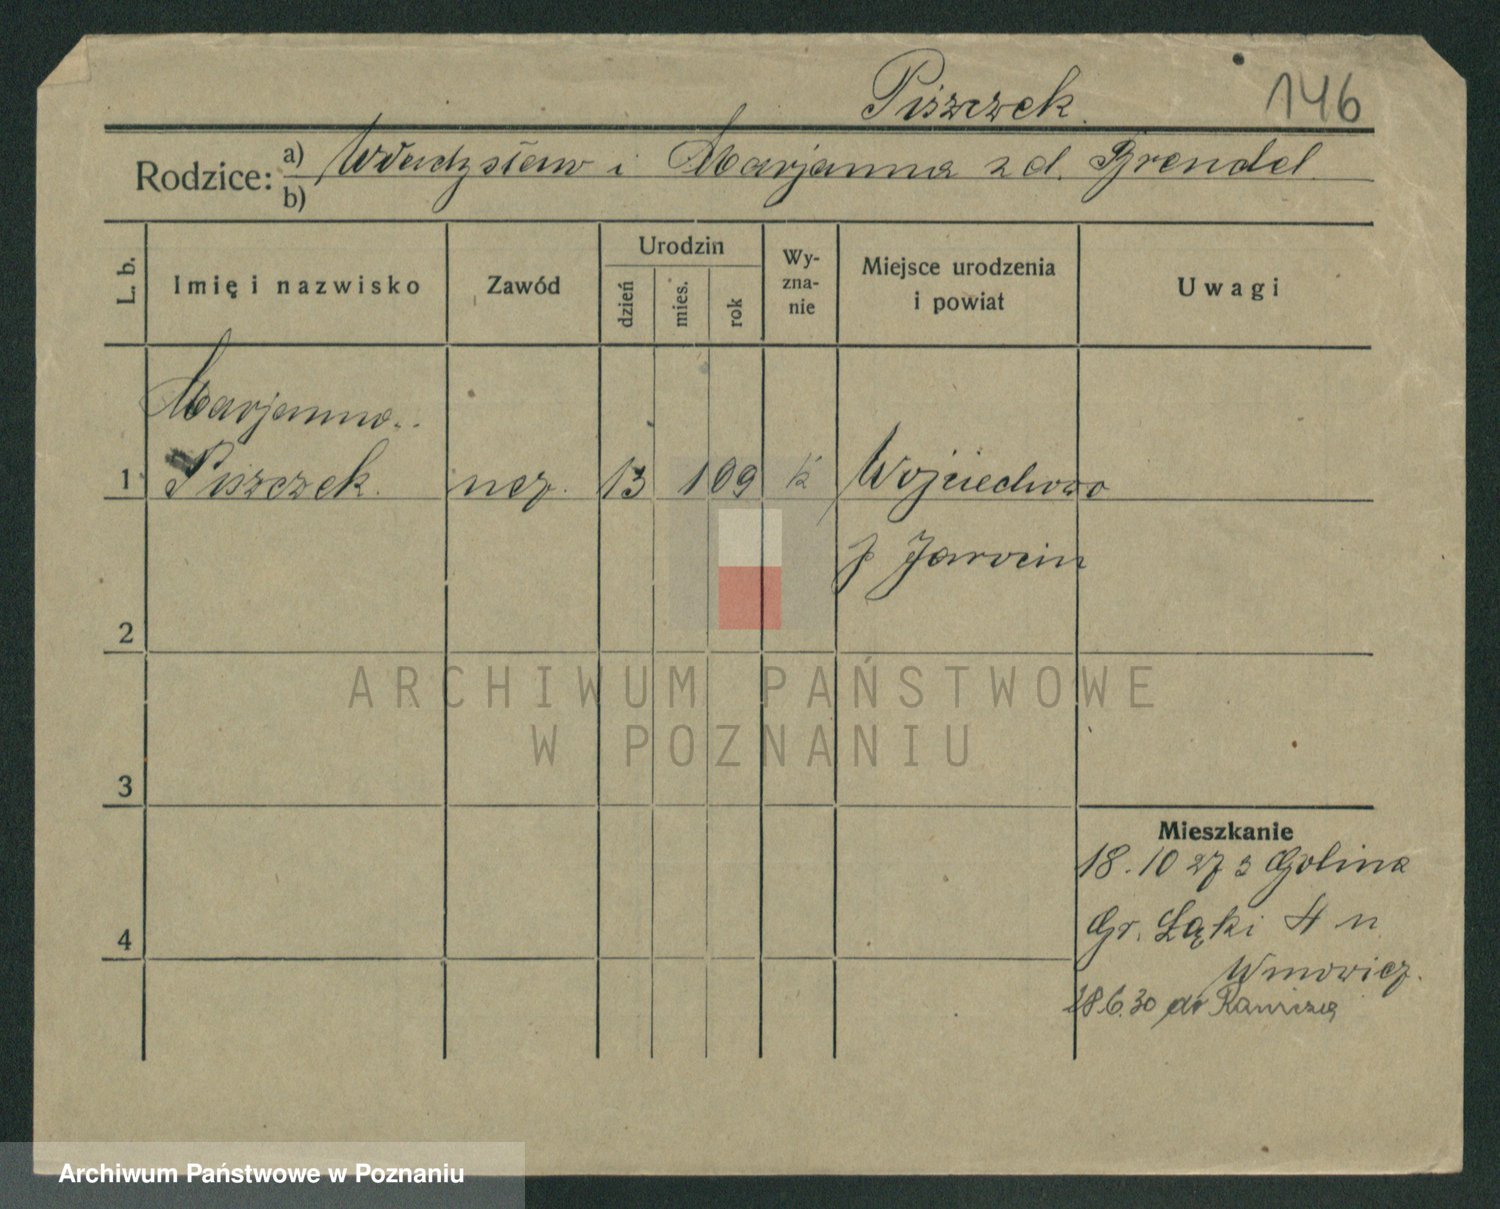 Piszczek.
146
Rodzice: a) Władysław i Marjanna z d. Brendel.
b)
L. b.
Imię i nazwisko
Zawód
Urodzin
dzień
mies.
rok
Wy-
zna-
nie
Miejsce urodzenia
i powiat
Uwagi
Marjanna
1 Piszczek. ucz. 13 1 09 k Wojciechowo
p Jarocin
2
3
4
Mieszkanie
18.10 27 z Golina
Gr. Łąki 4 u
28.6.30 do
ARCHIWUM PAŃSTWOWE
W POZNANIU
Archiwum Państwowe w Poznaniu